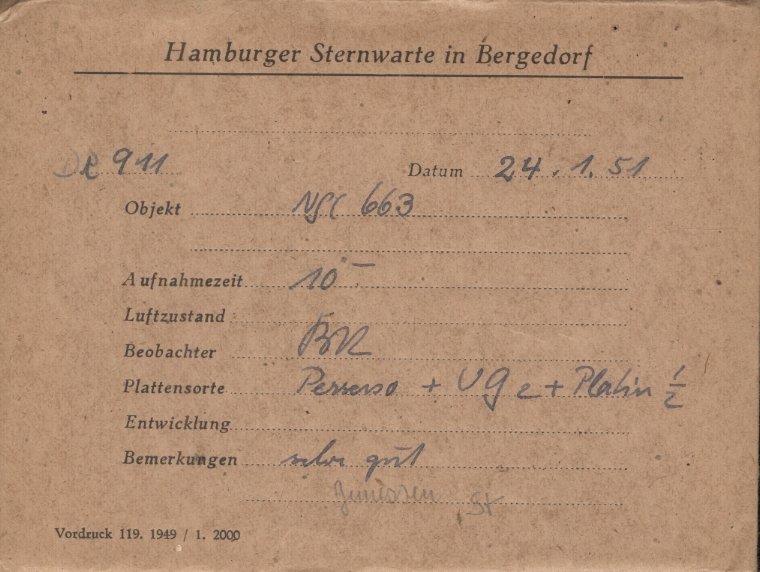 Hamburger Sternwarte in Bergedorf
DR 911 Datum 24. 1. 51
Objekt NGC 663
Aufnahmezeit 10
Luftzustand
Beobachter
Plattensorte Perserso + UG 2 + Platin 1/2
Entwicklung
Bemerkungen sehr gut
Gemessen St
Vordruck 119. 1949 / 1. 2000